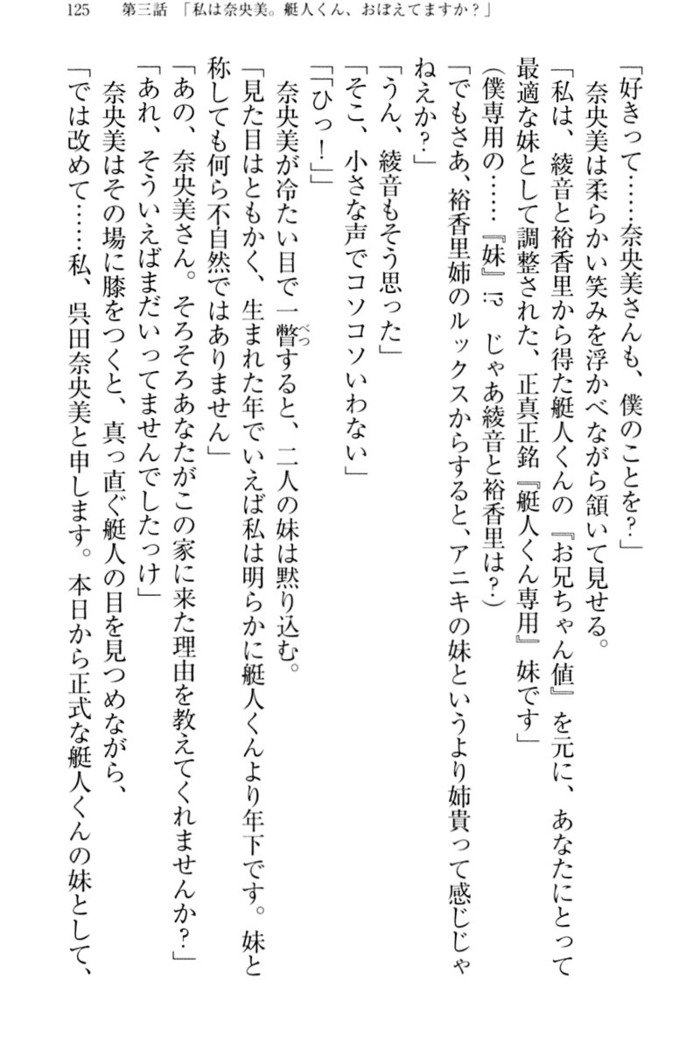 125　第三話　「私は奈央美。艇人くん、おぼえてますか？」
「好きって……奈央美さんも、僕のことを？」
　奈央美は柔らかい笑みを浮かべながら頷いて見せる。
「私は、綾音と裕香里から得た艇人くんの『お兄ちゃん値』を元に、あなたにとって
最適な妹として調整された、正真正銘『艇人くん専用』妹です」
（僕専用の……『妹』!?　じゃあ綾音と裕香里は？）
「でもさあ、裕香里姉のルックスからすると、アニキの妹というより姉貴って感じじゃ
ねえか？」
「うん、綾音もそう思った」
「そこ、小さな声でコソコソいわない」
「「ひっ！」」
　奈央美が冷たい目で一瞥べつすると、二人の妹は黙り込む。
「見た目はともかく、生まれた年でいえば私は明らかに艇人くんより年下です。妹と
称しても何ら不自然ではありません」
「あの、奈央美さん。そろそろあなたがこの家に来た理由を教えてくれませんか？」
「あれ、そういえばまだいってませんでしたっけ」
　奈央美はその場に膝をつくと、真っ直ぐ艇人の目を見つめながら、
「では改めて……私、呉田奈央美と申します。本日から正式な艇人くんの妹として、